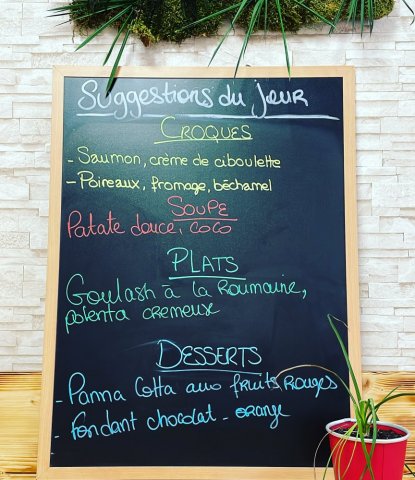 Suggestions du jour
CROQUES
- Saumon, crème de ciboulette
- Poireaux, fromage, béchamel
SOUPE
Patate douce, coco
PLATS
Goulash à la Roumaine,
polenta cremeuse
DESSERTS
- Panna Cotta aux fruits rouges
- Fondant chocolat - orange